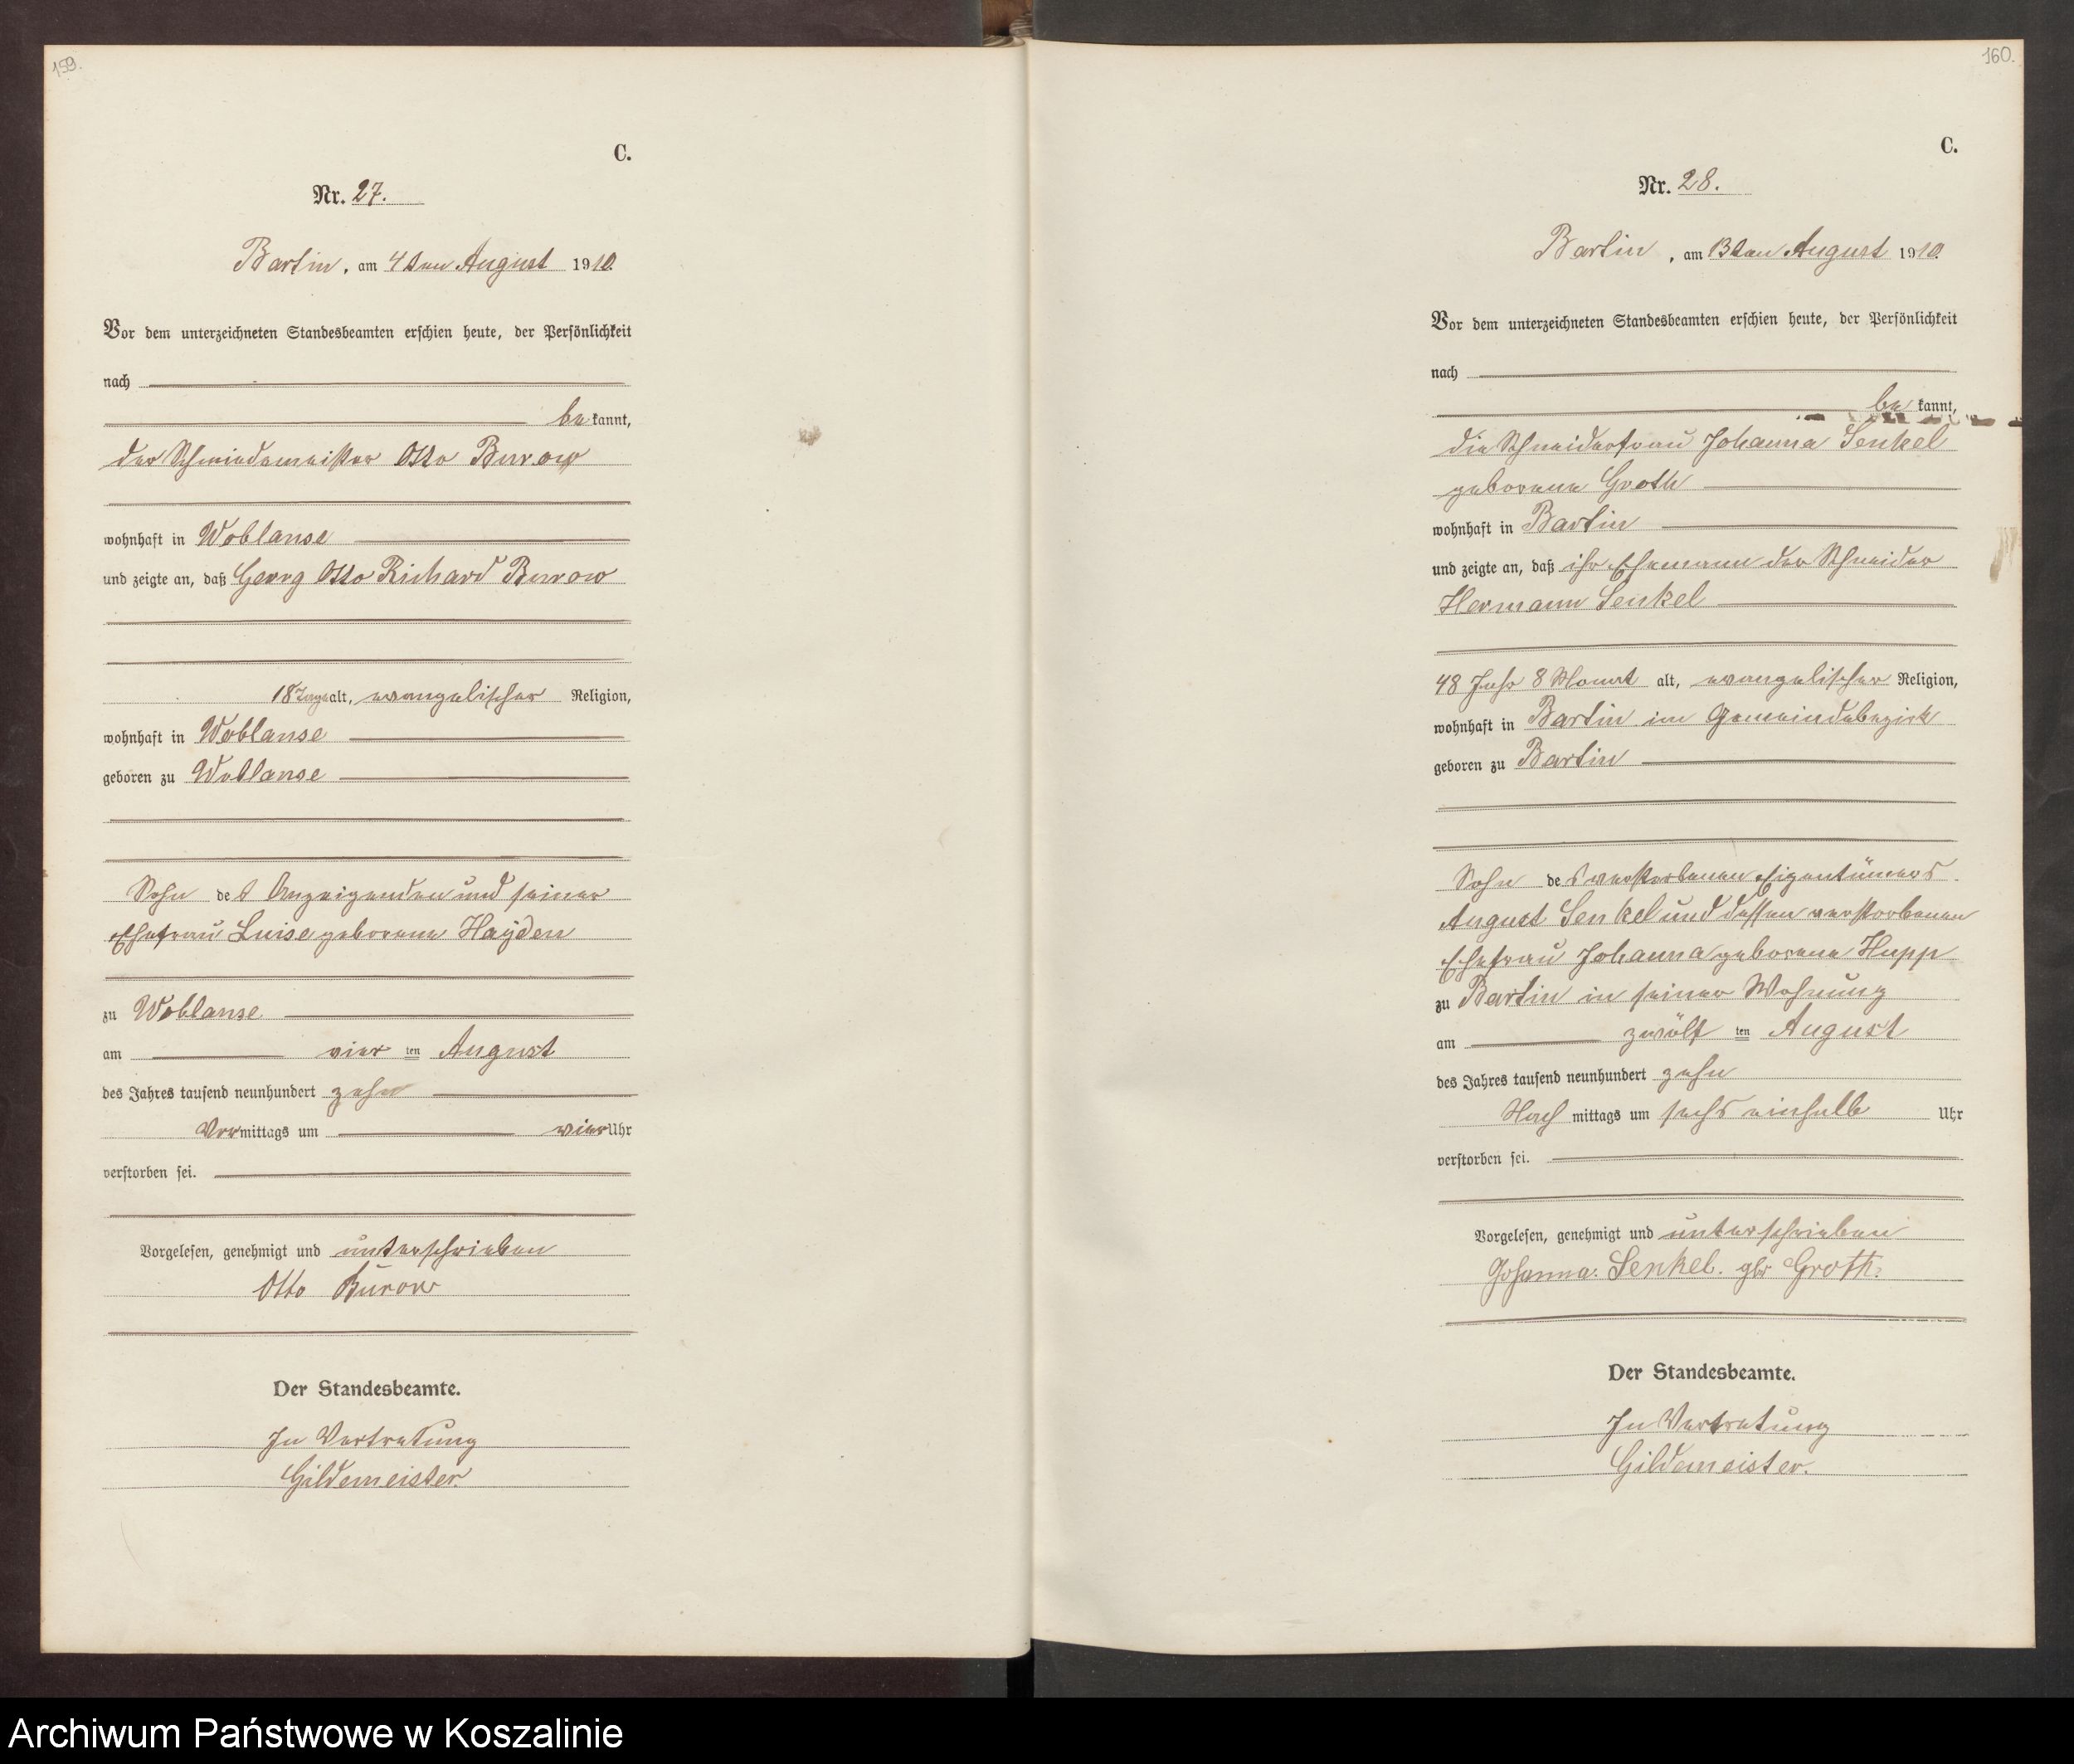 159.
C.
Nr. 27.
Bartin, am 4ten August 1910.
Vor dem unterzeichneten Standesbeamten erschien heute, der Persönlichkeit
nach
be kannt,
der Schmiedemeister Otto Burow
wohnhaft in Woblanse
und zeigte an, daß Georg Otto Richard Burow
18 Tage alt, evangelischer Religion,
wohnhaft in Woblanse
geboren zu Woblanse
Sohn des Anzeigenden und seiner
Ehefrau Luise geborene Hayden
zu Woblanse
am vier ten August
des Jahres tausend neunhundert zehn
Vor mittags um vier Uhr
verstorben sei.
Vorgelesen, genehmigt und unterschrieben
Otto Burow
Der Standesbeamte.
In Vertretung
Gildemeister.
160.
C.
Nr. 28.
Bartin, am 13ten August 1910.
Vor dem unterzeichneten Standesbeamten erschien heute, der Persönlichkeit
nach
be kannt,
die Schneiderfrau Johanna Senkel
geborene Groth
wohnhaft in Bartin
und zeigte an, daß ihr Ehemann der Schneider
Hermann Senkel
48 Jahr 8 Monat alt, evangelischer Religion,
wohnhaft in Bartin im Gemeindebezirk
geboren zu Bartin
Sohn des verstorbenen Eigentümers
August Senkel und dessen verstorbenen
Ehefrau Johanna geborene Hupp
zu Bartin in seiner Wohnung
am zwölf ten August
des Jahres tausend neunhundert zehn
Nach mittags um sechs einhalb Uhr
verstorben sei.
Vorgelesen, genehmigt und unterschrieben
Johanna. Senkel. gbr Groth.
Der Standesbeamte.
In Vertretung
Gildemeister.
Archiwum Państwowe w Koszalinie